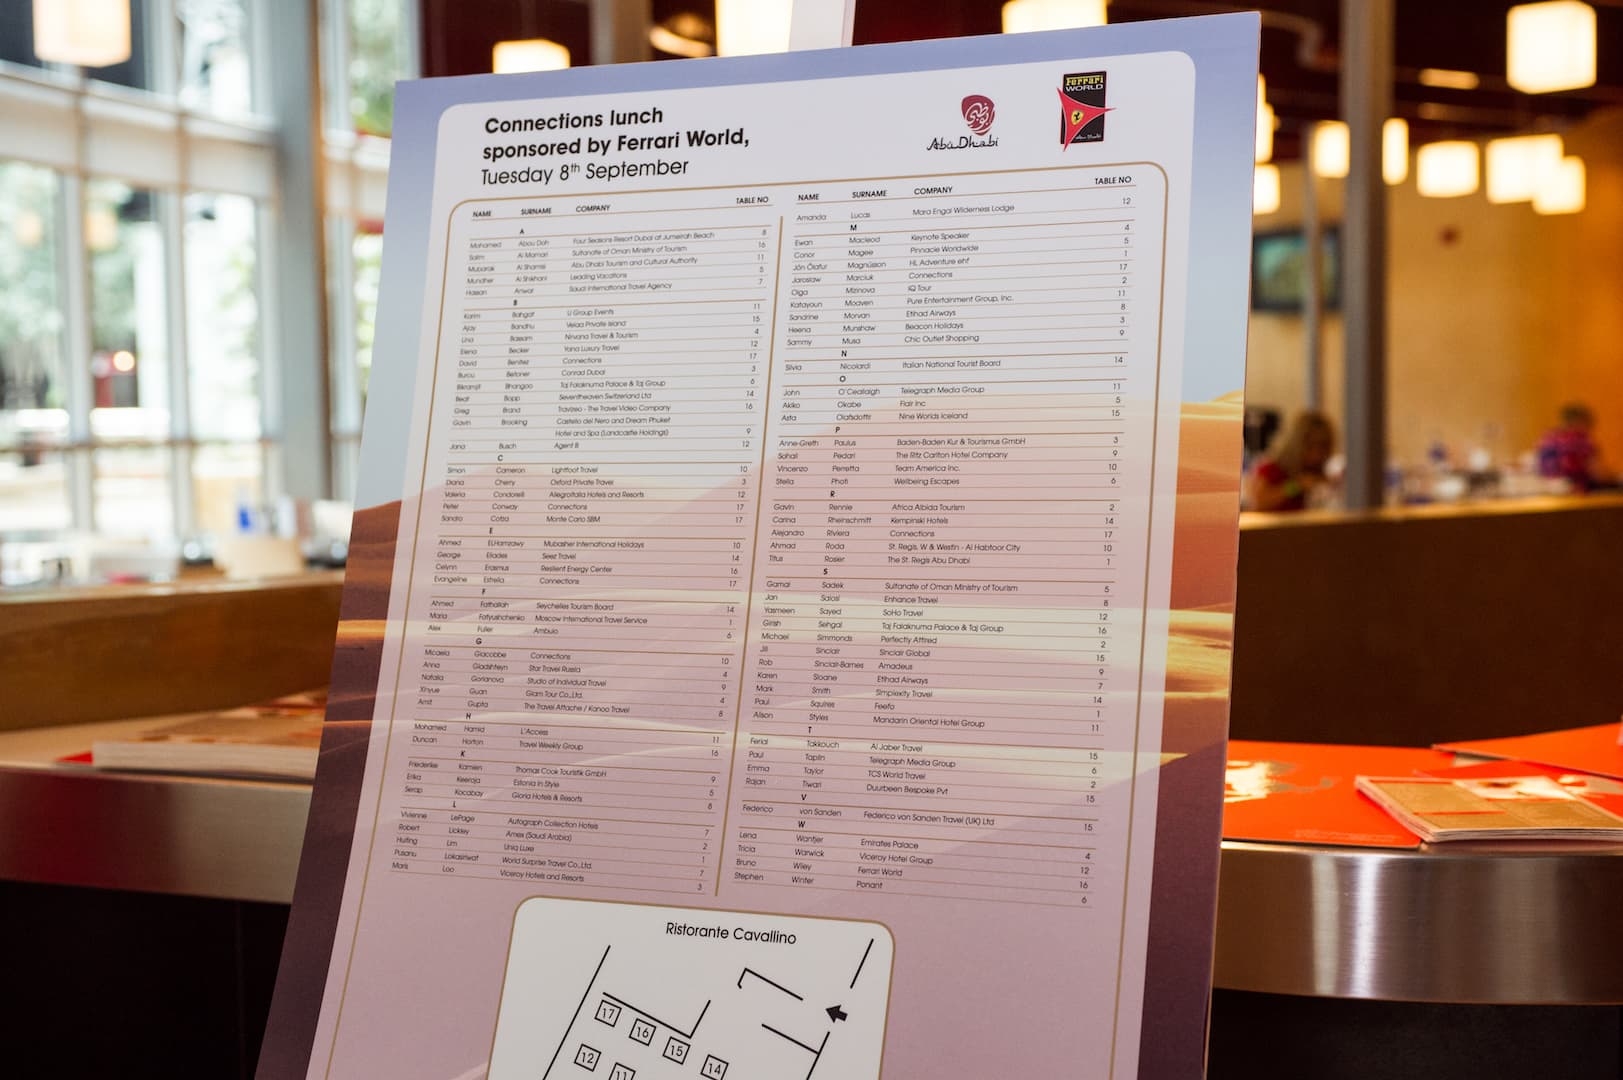 Connections lunch
sponsored by Ferrari World,
Tuesday 8th September
Abu Dhabi
Ferrari
WORLD
Abu Dhabi
NAME SURNAME COMPANY TABLE NO
A
Mohamed Abou Dah Four Seasons Resort Dubai at Jumeirah Beach 8
Salim Al Mamari Sultanate of Oman Ministry of Tourism 16
Mubarak Al Shamisi Abu Dhabi Tourism and Cultural Authority 11
Mundher Al Shikhani Leading Vacations 5
Hassan Anwar Saudi International Travel Agency 7
B
Karim Bahgat U Group Events 11
Ajay Bandhu Velaa Private Island 15
Lina Bassam Nirvana Travel & Tourism 4
Elena Becker Yana Luxury Travel 12
David Benitez Connections 17
Burcu Betoner Conrad Dubai 3
Bikramjit Bhangoo Taj Falaknuma Palace & Taj Group 6
Beat Bopp Seventheaven Switzerland Ltd 14
Greg Brand Travizeo - The Travel Video Company 16
Gavin Brooking Castello del Nero and Dream Phuket
Hotel and Spa (Landcastle Holdings) 9
Jana Busch Agent B 12
C
Simon Cameron Lightfoot Travel 10
Diana Cherry Oxford Private Travel 3
Valeria Condorelli Allegroitalia Hotels and Resorts 12
Peter Conway Connections 17
Sandro Cotza Monte Carlo SBM 17
E
Ahmed ELHamzawy Mubasher International Holidays 10
George Eliades Seez Travel 14
Celynn Erasmus Resilient Energy Center 16
Evangeline Estrella Connections 17
F
Ahmed Fathallah Seychelles Tourism Board 14
Maria Fatyushchenko Moscow International Travel Service 1
Alex Fuller Ambulo 6
G
Micaela Giacobbe Connections 10
Anna Gladshteyn Star Travel Russia 4
Natalia Gorianova Studio of Individual Travel 9
Xinyue Guan Glam Tour Co.,Ltd. 4
Amit Gupta The Travel Attache / Kanoo Travel 8
H
Mohamed Hamid L'Access 11
Duncan Horton Travel Weekly Group 16
K
Friederike Kamien Thomas Cook Touristik GmbH 9
Erika Keeroja Estonia In Style 5
Serap Kocabay Gloria Hotels & Resorts 8
L
Vivienne LePage Autograph Collection Hotels 7
Robert Lickley Amex (Saudi Arabia) 2
Huifing Lim Uniq Luxe 1
Pusanu Lokasinwat World Surprise Travel Co.,Ltd. 7
Maris Loo Viceroy Hotels and Resorts 3
NAME SURNAME COMPANY TABLE NO
Amanda Lucas Mara Engai Wilderness Lodge 12
M
Ewan Macleod Keynote Speaker 4
Conor Magee Pinnacle Worldwide 5
Jón Ólafur Magnússon HL Adventure ehf 1
Jaroslaw Marciuk Connections 17
Olga Mizinova IQ Tour 2
Katayoun Moaven Pure Entertainment Group, Inc. 11
Sandrine Morvan Etihad Airways 8
Heena Munshaw Beacon Holidays 3
Sammy Musa Chic Outlet Shopping 9
N
Silvia Nicolardi Italian National Tourist Board 14
O
John O'Ceallaigh Telegraph Media Group 11
Akiko Okabe Flair Inc 5
Asta Olafsdottir Nine Worlds Iceland 15
P
Anne-Greth Paulus Baden-Baden Kur & Tourismus GmbH 3
Sohail Pedari The Ritz Carlton Hotel Company 9
Vincenzo Perretta Team America Inc. 10
Stella Photi Wellbeing Escapes 6
R
Gavin Rennie Africa Albida Tourism 2
Carina Rheinschmitt Kempinski Hotels 14
Alejandro Riviera Connections 17
Ahmad Roda St. Regis, W & Westin - Al Habtoor City 10
Titus Rosier The St. Regis Abu Dhabi 1
S
Gamal Sadek Sultanate of Oman Ministry of Tourism 5
Jan Saiosi Enhance Travel 8
Yasmeen Sayed SoHo Travel 12
Girish Sehgal Taj Falaknuma Palace & Taj Group 16
Michael Simmonds Perfectly Attired 2
Jill Sinclair Sinclair Global 15
Rob Sinclair-Barnes Amadeus 9
Karen Sloane Etihad Airways 7
Mark Smith Simplexity Travel 14
Paul Squires Feefo 1
Alison Styles Mandarin Oriental Hotel Group 11
T
Ferial Takkouch Al Jaber Travel 15
Paul Taplin Telegraph Media Group 6
Emma Taylor TCS World Travel 2
Rajan Tiwari Duurbeen Bespoke Pvt 15
V
Federico von Sanden Federico von Sanden Travel (UK) Ltd 15
W
Lena Wantjer Emirates Palace 4
Tricia Warwick Viceroy Hotel Group 12
Bruno Wiley Ferrari World 16
Stephen Winter Ponant 6
Ristorante Cavallino
17
16
15
14
12
11